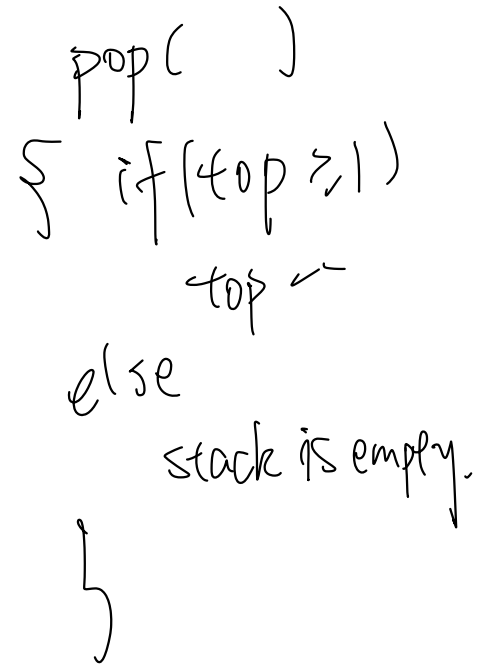 pop( )
{ if(top ≥ 1)
top --
else
stack is empty.
}